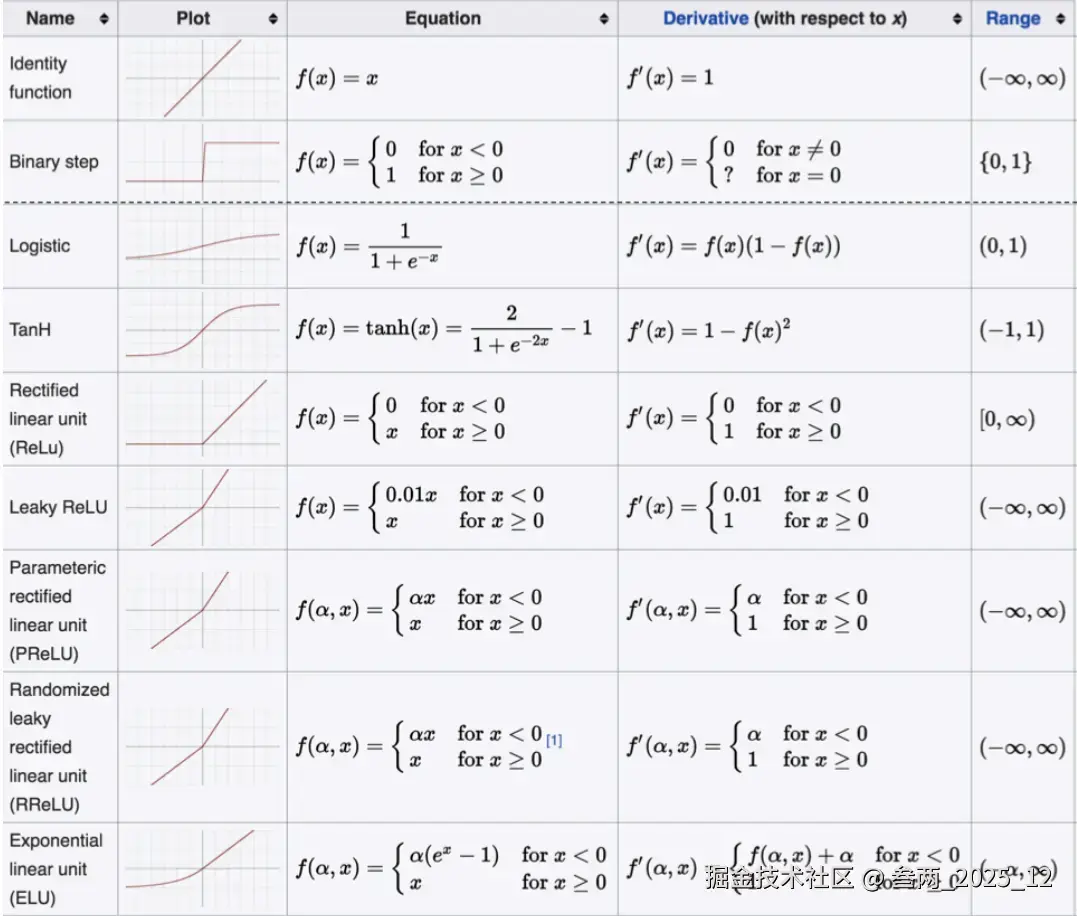 Name Plot Equation Derivative (with respect to x) Range
Identity
function
f(x) = x
f′(x) = 1
(−∞, ∞)
Binary step
f(x) = { 0 for x < 0
1 for x ≥ 0
f′(x) = { 0 for x ≠ 0
? for x = 0
{0, 1}
Logistic
f(x) = 1 / (1 + e^{−x})
f′(x) = f(x)(1 − f(x))
(0, 1)
TanH
f(x) = tanh(x) = 2 / (1 + e^{−2x}) − 1
f′(x) = 1 − f(x)²
(−1, 1)
Rectified
linear unit
(ReLu)
f(x) = { 0 for x < 0
x for x ≥ 0
f′(x) = { 0 for x < 0
1 for x ≥ 0
[0, ∞)
Leaky ReLU
f(x) = { 0.01x for x < 0
x for x ≥ 0
f′(x) = { 0.01 for x < 0
1 for x ≥ 0
(−∞, ∞)
Parameteric
rectified
linear unit
(PReLU)
f(α, x) = { αx for x < 0
x for x ≥ 0
f′(α, x) = { α for x < 0
1 for x ≥ 0
(−∞, ∞)
Randomized
leaky
rectified
linear unit
(RReLU)
f(α, x) = { αx for x < 0 [1]
x for x ≥ 0
f′(α, x) = { α for x < 0
1 for x ≥ 0
(−∞, ∞)
Exponential
linear unit
(ELU)
f(α, x) = { α(e^x − 1) for x < 0
x for x ≥ 0
f′(α, x) = { f(α, x) + α for x < 0
(−α, ∞)
掘金技术社区 @ 叁两_2025_12